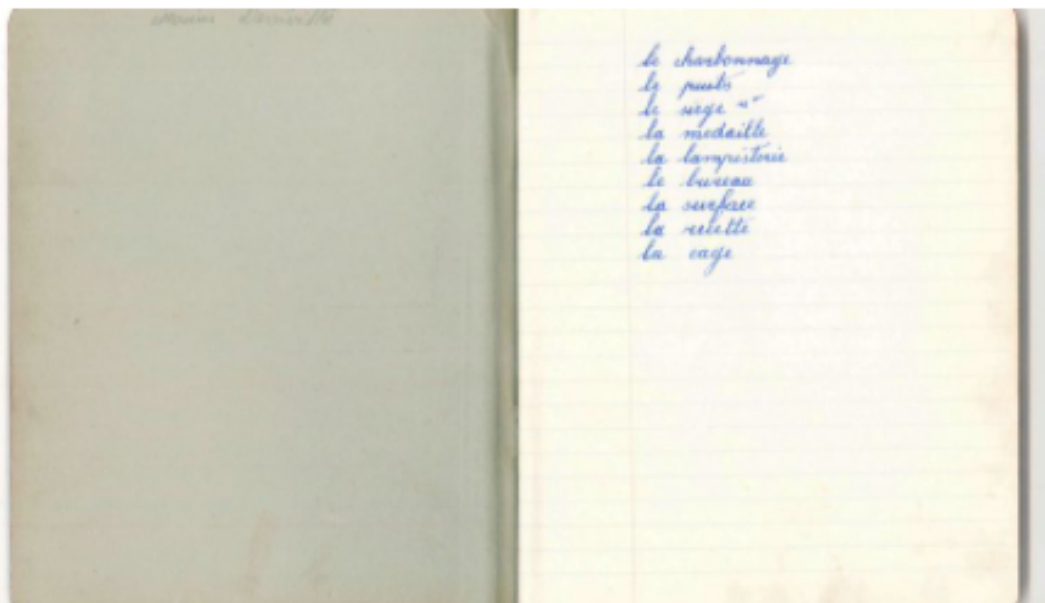 le charbonnage
le puits
le siège "
la medaille
la lampisterie
le bureau
la surface
la recette
la cage